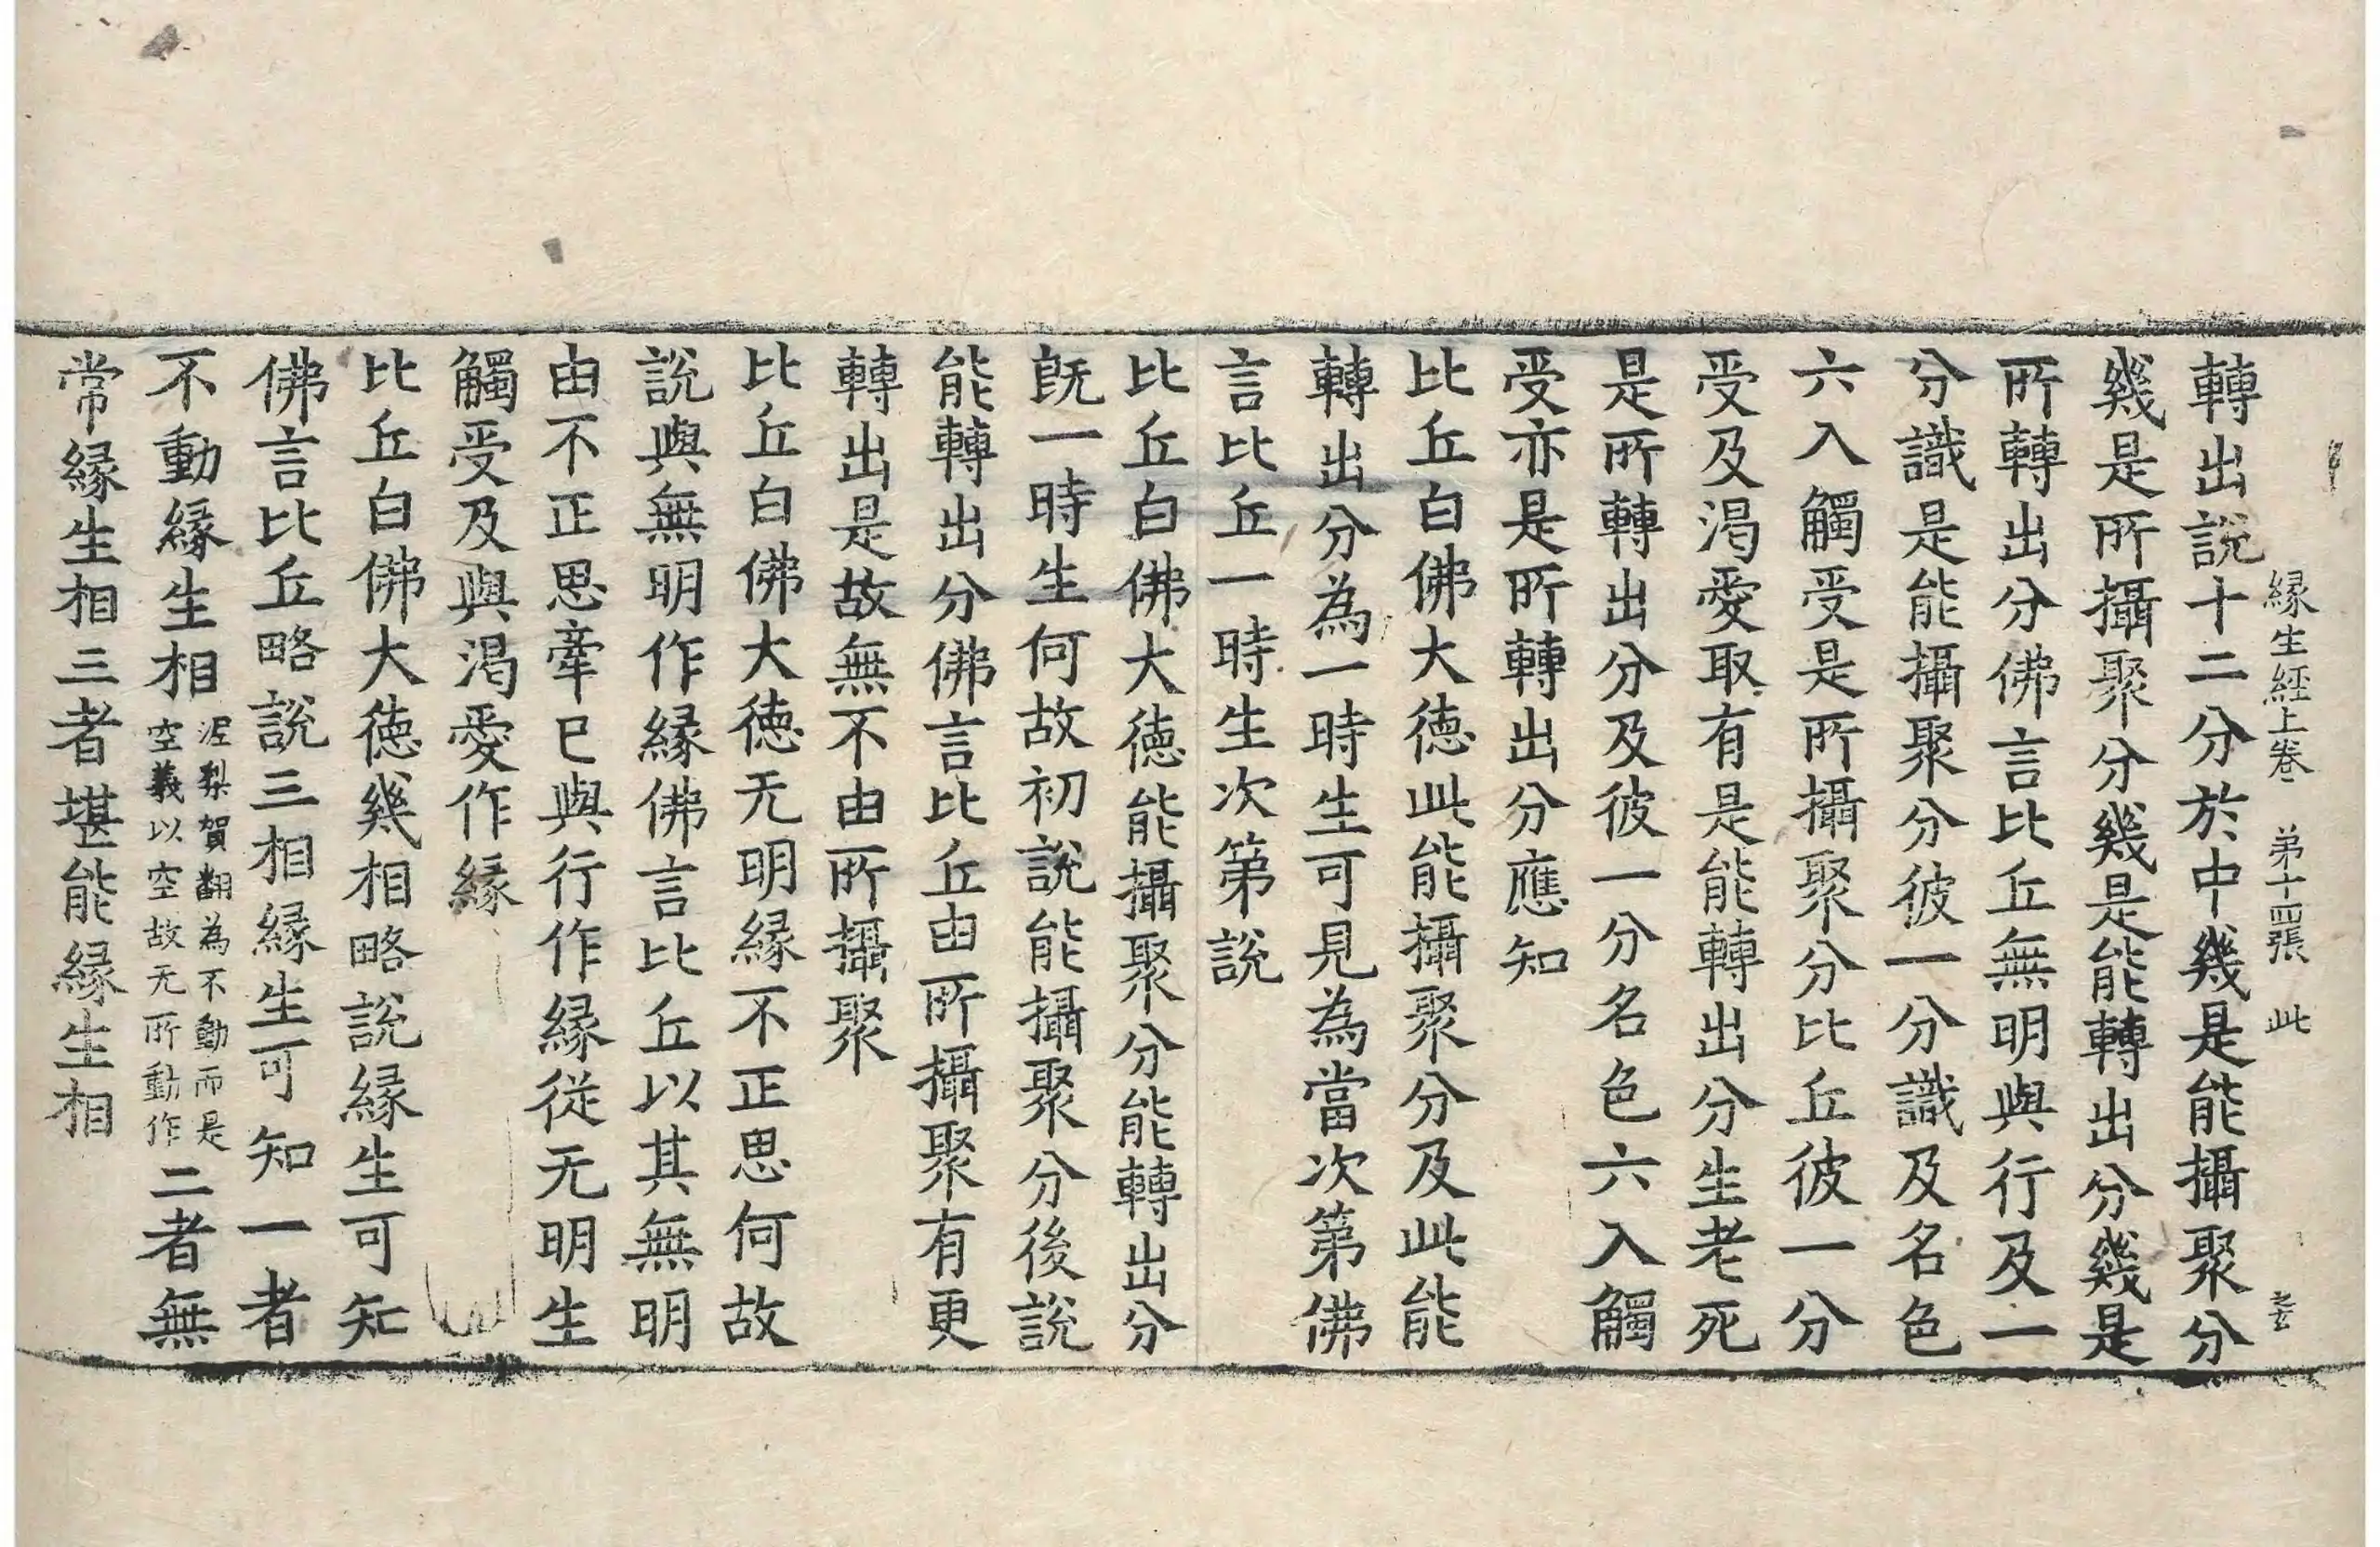 緣生經上卷 第十四張 此
轉出說十二分於中幾是能攝聚分
幾是所攝聚分幾是能轉出分幾是
所轉出分佛言比丘無明與行及一
分識是能攝聚分彼一分識及名色
六入觸受是所攝聚分比丘彼一分
受及渴愛取有是能轉出分生老死
是所轉出分及彼一分名色六入觸
受亦是所轉出分應知
比丘白佛大德此能攝聚分及此能
轉出分為一時生可見為當次第佛
言比丘一時生次第說
比丘白佛大德能攝聚分能轉出分
旣一時生何故初說能攝聚分後說
能轉出分佛言比丘由所攝聚有更
轉出是故無不由所攝聚
比丘白佛大德无明緣不正思何故
說與無明作緣佛言比丘以其無明
由不正思牽已與行作緣從无明生
觸受及與渴愛作緣
比丘白佛大德幾相略說緣生可知
佛言比丘略說三相緣生可知一者
不動緣生相泥梨賀翻為不動而是空義以空故无所動作二者無
常緣生相三者堪能緣生相